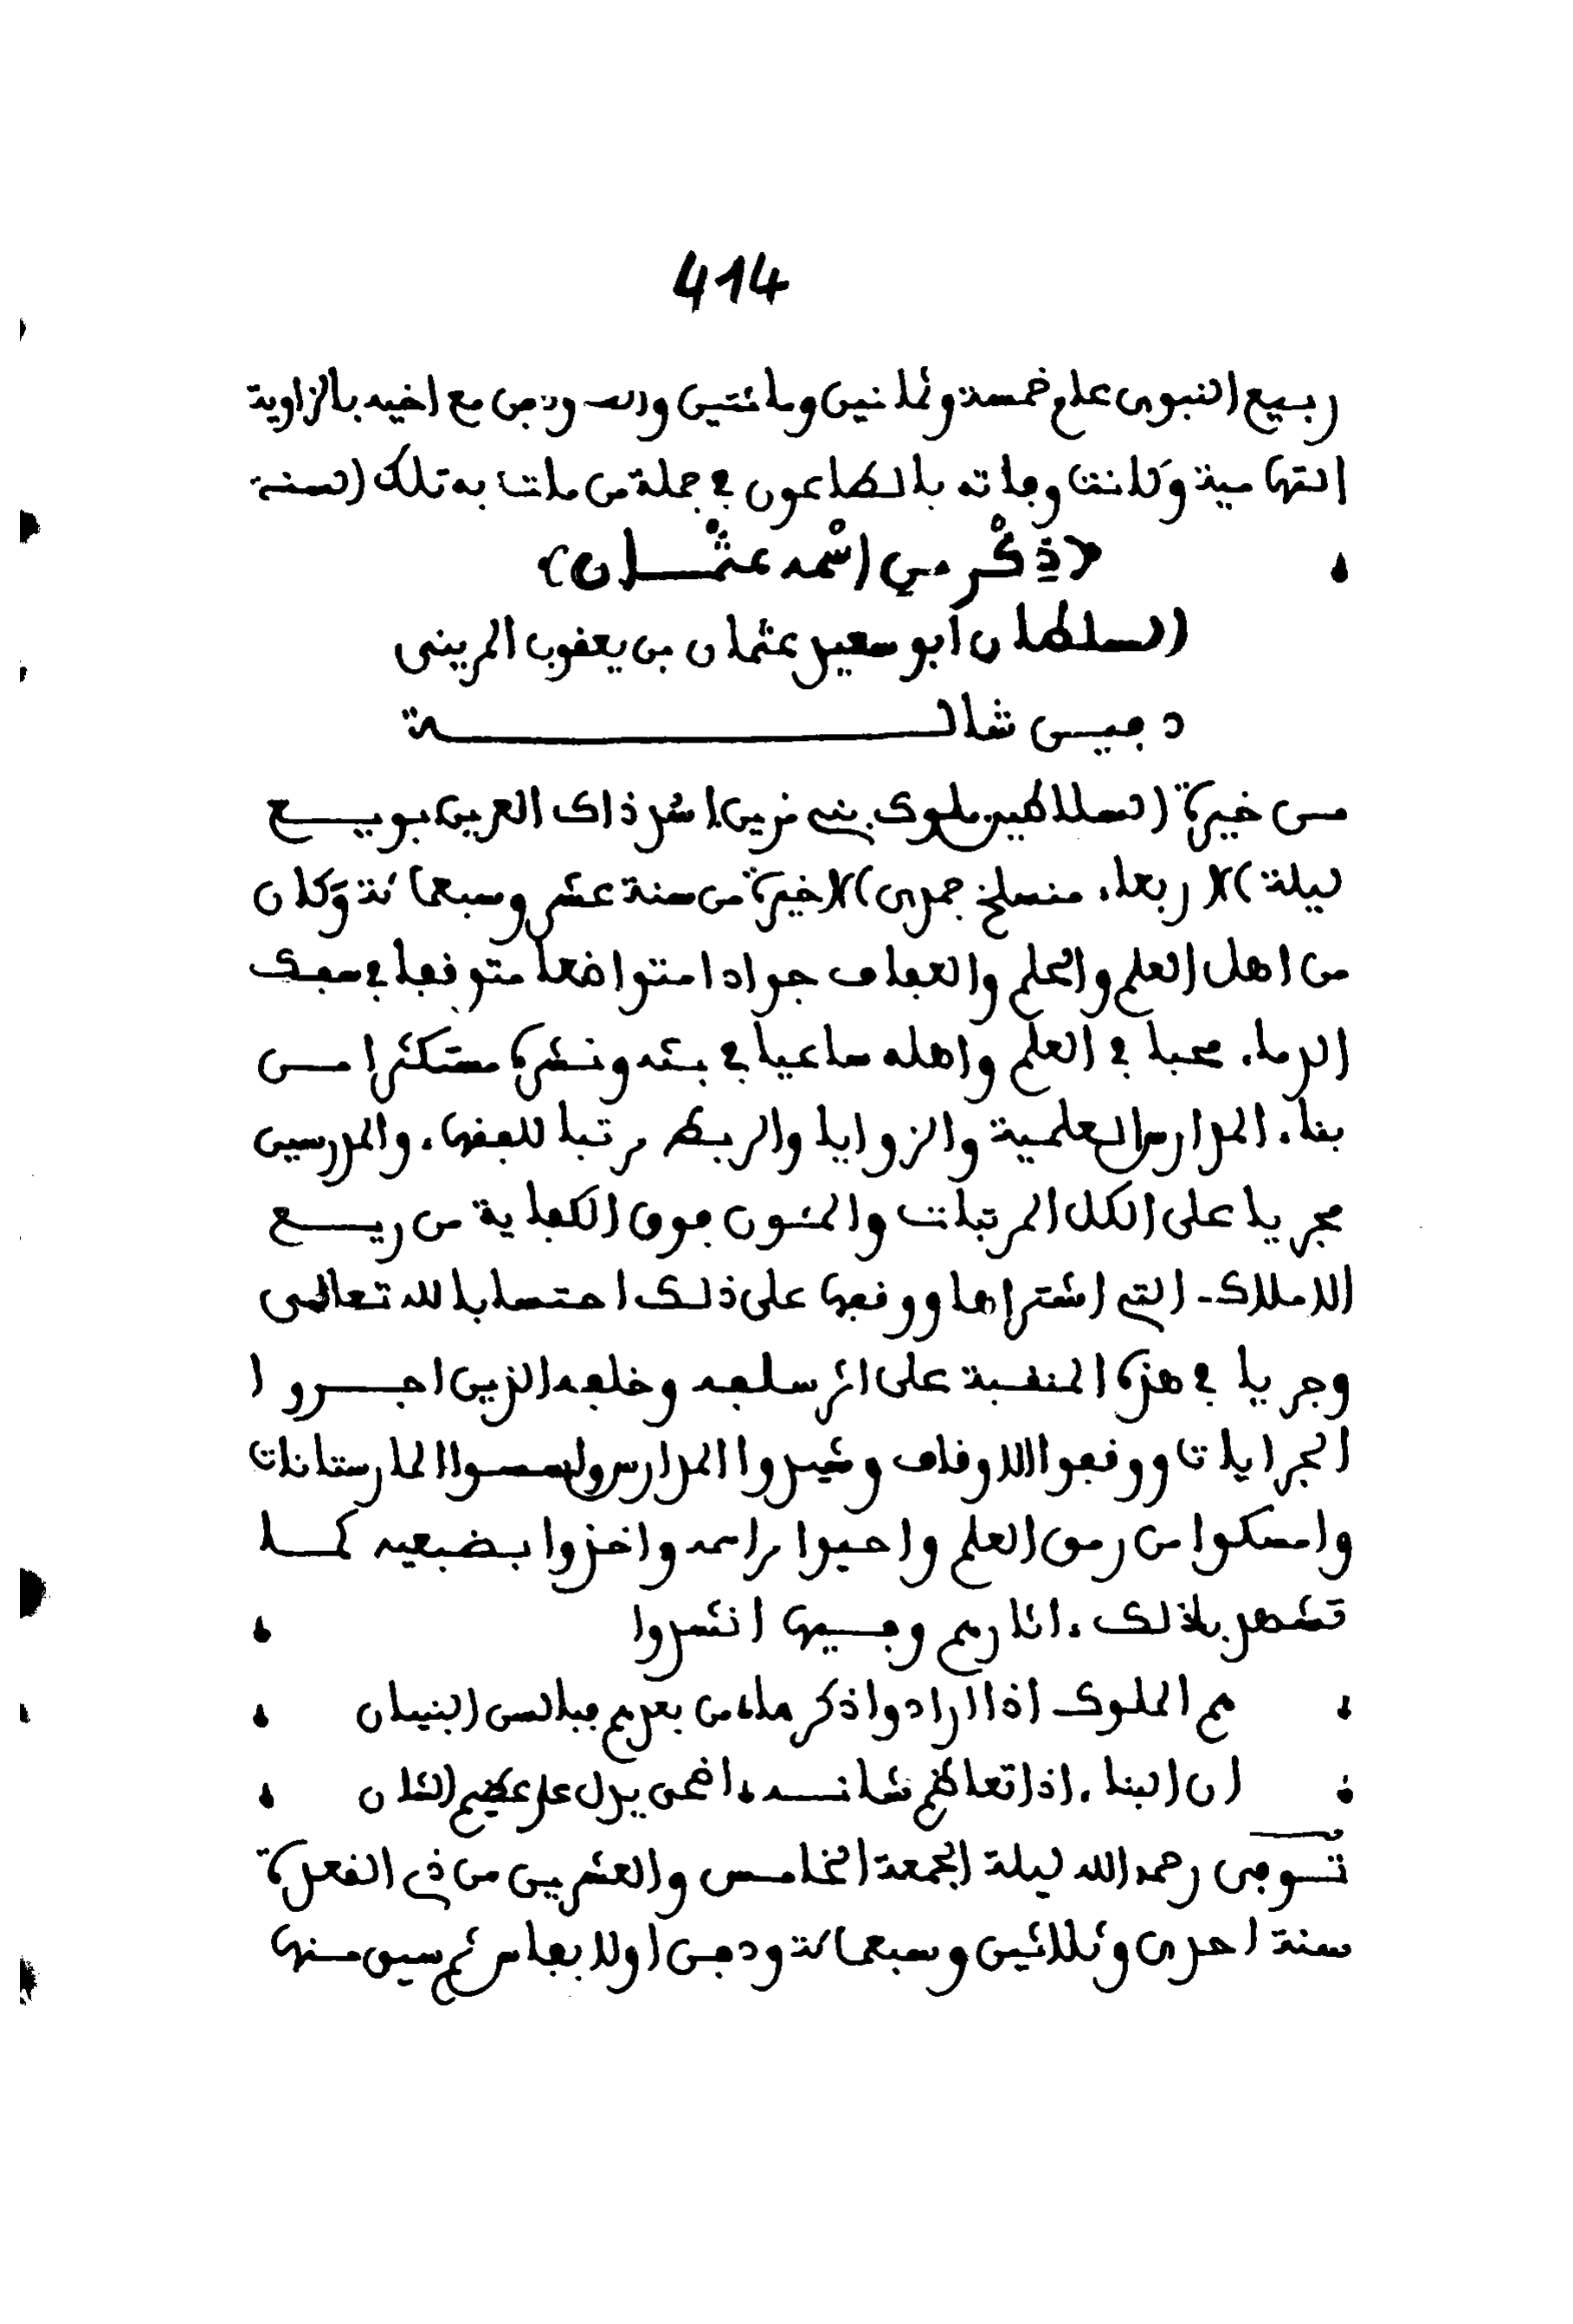 414
ربيع النبوى عام خمسة وثمانين ومائتين والف ودفن مع اخيه بالزاوية
التهامية وكانت وفاته بالطاعون في جملة من مات به تلك السنة
﴿ذكر من اسمه عثمان﴾
السلطان أبو سعيد عثمان بن يعقوب المرينى
دفين شالة
من خيرة السلاطين ملوك بني مرين اسد ذاك العرين بويع
ليلة الاربعاء منسلخ جمدى الاخيرة من سنة عشر وسبعمائة وكان
من اهل العلم والحلم والعفاف جوادا متواضعا متوقفا في سفك
الدماء محبا في العلم واهله ساعيا في بثه ونشره مستكثرا من
بناء المدارس العلمية والزوايا والربط مرتبا للفقهاء والمدرسين
مجريا على الكل المرتبات والمئون فوق الكفاية من ريع
الاملاك التي اشتراها ووقفها على ذلك احتسابا لله تعالى
وجريا في هذه المنقبة على اثر سلفه وخلفه الذين اجروا
الجرايات ووقفوا الاوقاف وشيدوا المدارس واسسوا المارستانات
وامسكوا من رمق العلم واحيوا مراسمه واخذوا بضبعيه كما
تشهد بذلك ءاثارهم وفيها انشدوا
هم الملوك اذا ارادوا ذكرها من بعدهم فبالسن البنيان
ان البناء اذا تعاظم شانه اضحى يدل على عظيم الشان
توفى رحمه الله ليلة الجمعة الخامس والعشرين من ذي القعدة
سنة احدى وثلاثين وسبعمائة ودفن اولا بفاس ثم سيق منها